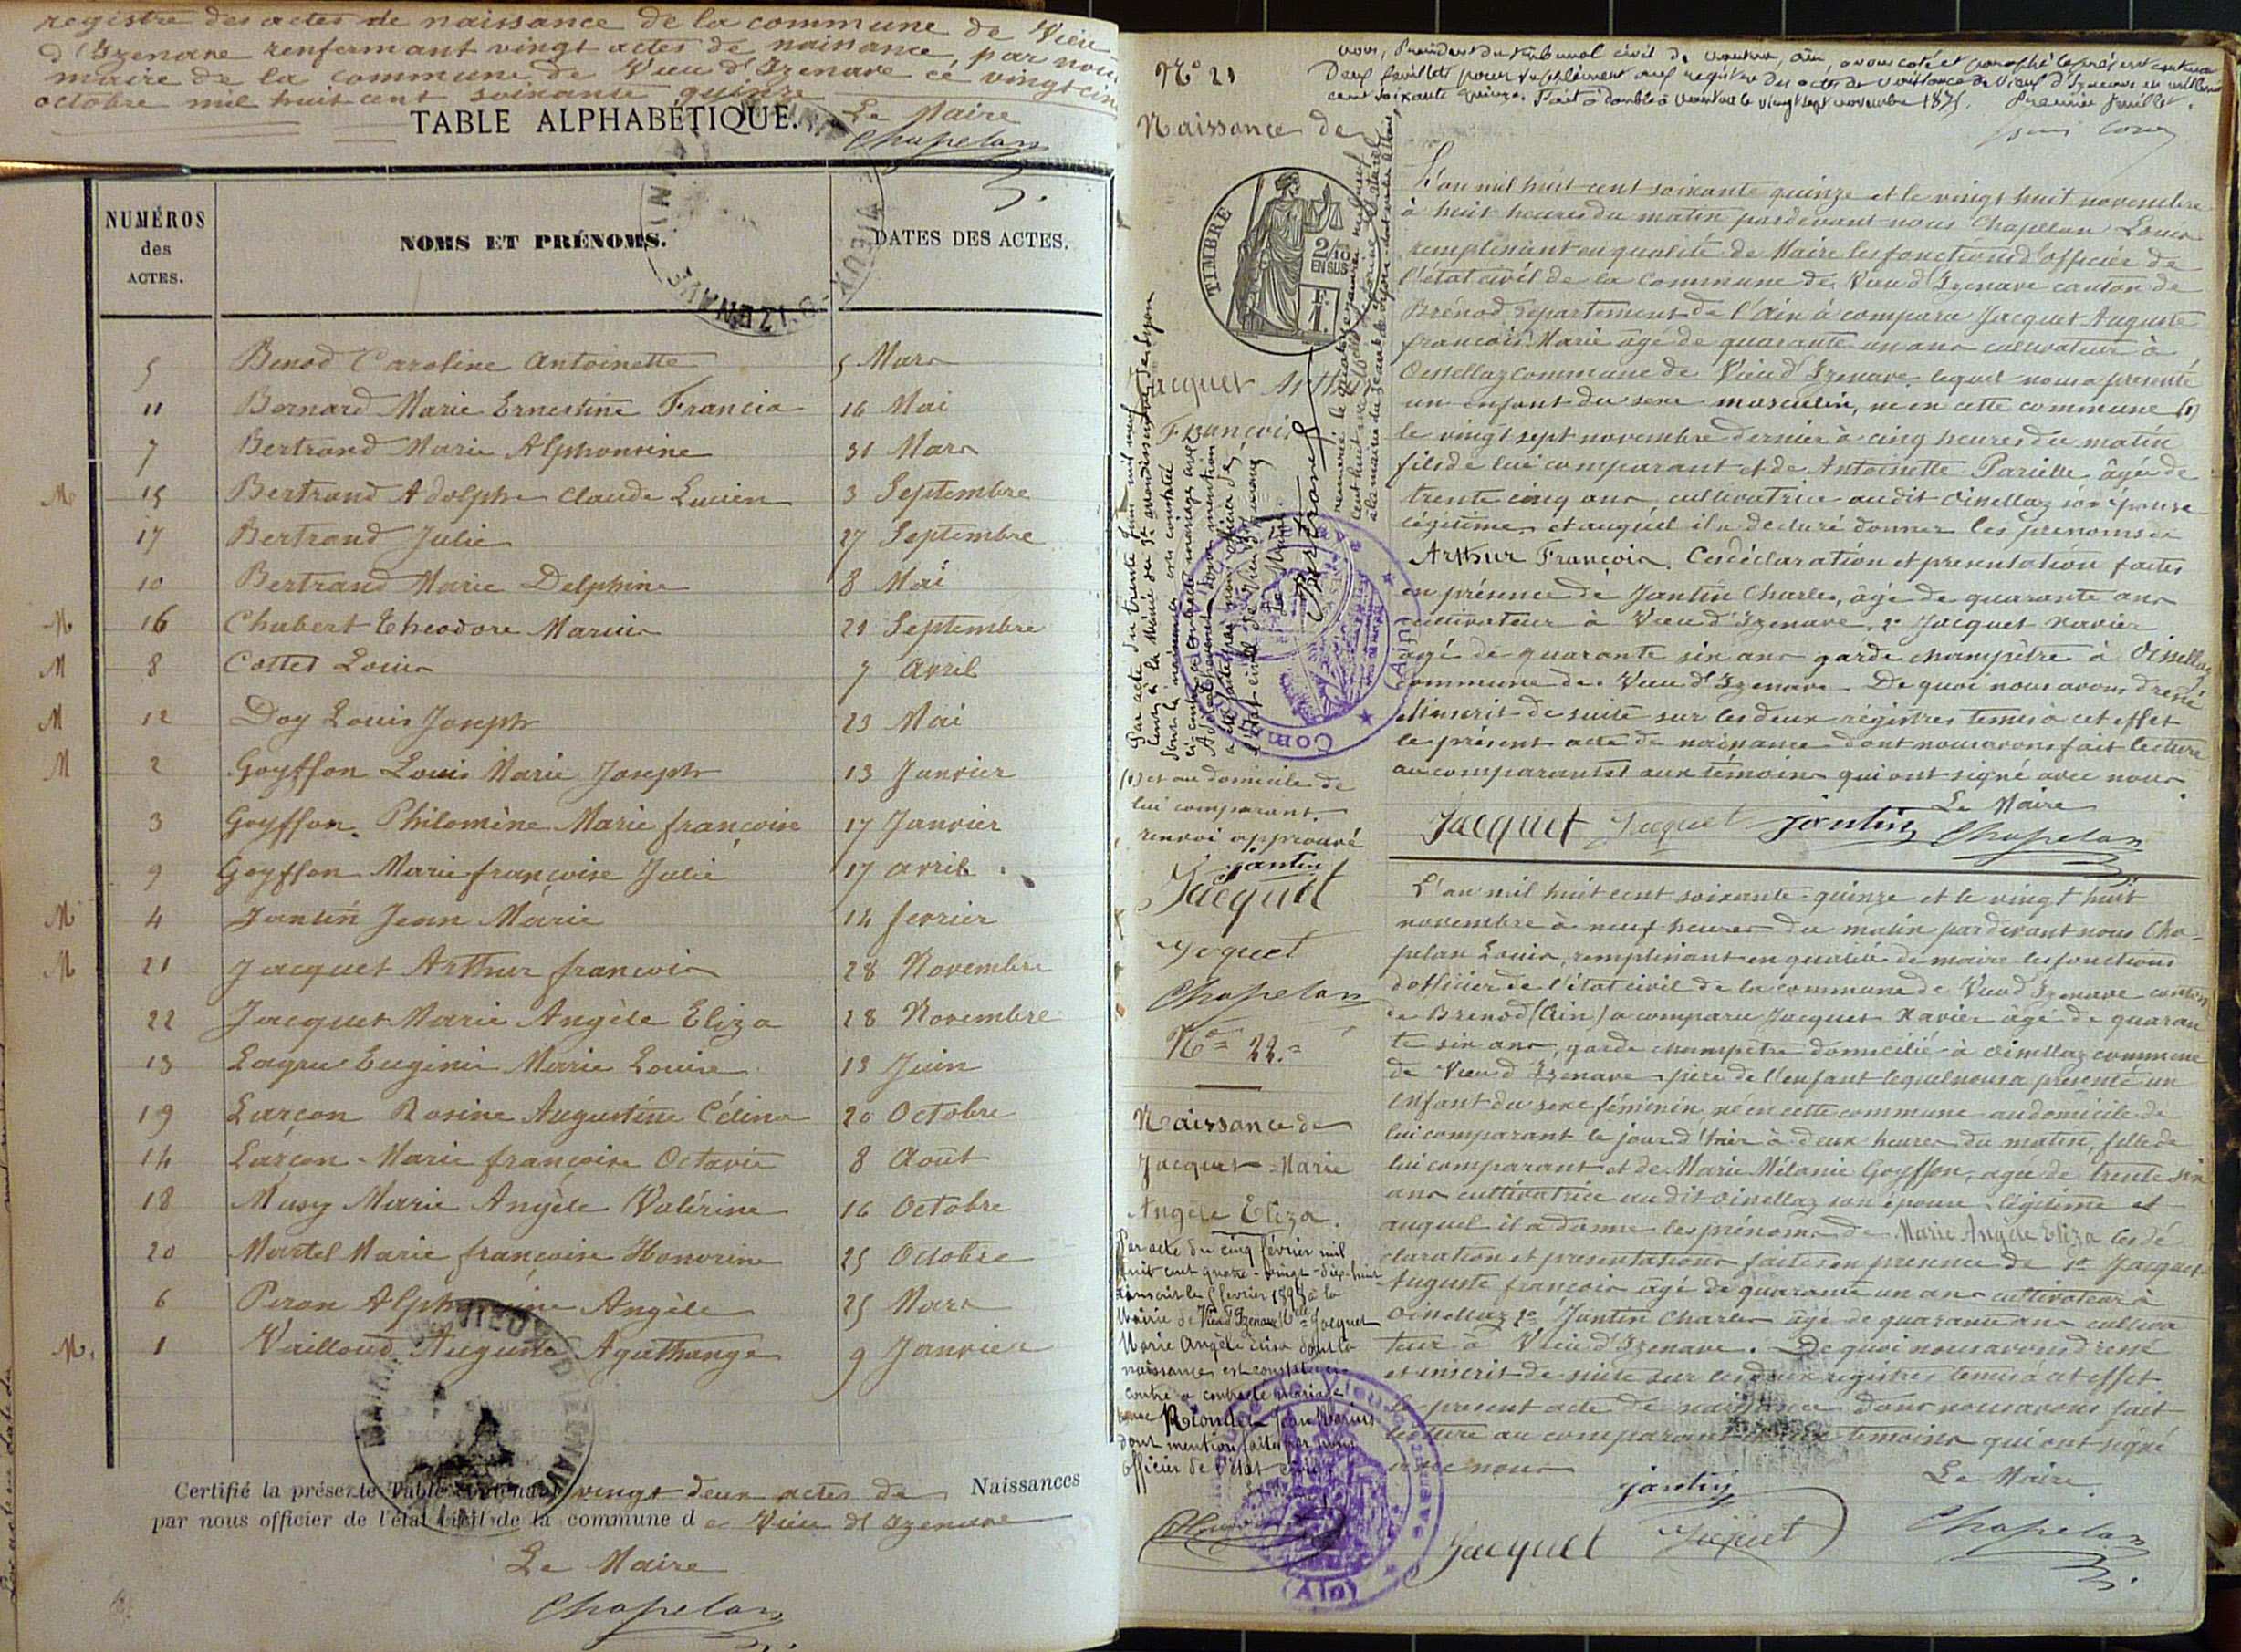 registre des actes de naissance de la commune de Vieu
d'Izenave renfermant vingt actes de naissance, par nous
maire de la commune de Vieu d'Izenave ce vingt cinq
octobre mil huit cent soixante quinze
Le Maire
Chapelan
TABLE ALPHABÉTIQUE.
NUMÉROS
des
ACTES.
NOMS ET PRÉNOMS.
DATES DES ACTES.
5 Benod Caroline Antoinette 5 Mars
11 Bernard Marie Ernestine Francia 16 Mai
7 Bertrand Marie Alphonsine 31 Mars
M 15 Bertrand Adolphe Claude Lucien 3 Septembre
17 Bertrand Julie 27 Septembre
10 Bertrand Marie Delphine 8 Mai
M 16 Chabert Theodore Marius 21 Septembre
M 8 Cottet Louis 7 avril
M 12 Doy Louis Joseph 23 Mai
M 2 Goyffon Louis Marie Joseph 13 Janvier
3 Goyffon Philomène Marie françoise 17 Janvier
9 Goyffon Marie françoise Julie 17 avril
M 4 Jantin Jean Marie 14 fevrier
M 21 Jacquet Arthur francois 28 Novembre
22 Jacquet Marie Angèle Eliza 28 Novembre
13 Lagrue Eugénie Marie Louise 13 Juin
19 Larçon Rosine Augustine Célina 20 Octobre
14 Larçon Marie françoise Octavie 8 Août
18 Musy Marie Angèle Valérine 16 Octobre
20 Martel Marie françoise Honorine 25 Octobre
6 Peron Alphonsine Angèle 25 Mars
M. 1 Vailloud Auguste Agathange 9 Janvier
Certifié la présente Table contenant vingt deux actes de Naissances
par nous officier de l'état civil de la commune de Vieu d'Izenave
Le Maire
Chapelan
Nous, Président du tribunal civil de Nantua, Ain, avons coté et paraphé le présent contenant
Deux feuillets pour supplément aux registres des actes de naissance de Vieux d'Izenave en mil huit
cent soixante quinze. Fait à double à Nantua le vingt sept novembre 1875. Premier feuillet.
N° 21
Naissance de
TIMBRE
2/10
EN SUS
F.
1.
Jacquet Arthur
François
L'an mil huit cent soixante quinze et le vingt huit novembre
à huit heures du matin pardevant nous Chapelan Louis
remplissant en qualité de Maire les fonctions d'officier de
l'état civil de la commune de Vieu d'Izenave canton de
Brénod, département de l'Ain à comparu Jacquet Auguste
francois Marie âgé de quarante un ans cultivateur à
Oisellaz commune de Vieu d'Izenave, lequel nous a présenté
un enfant du sexe masculin, né en cette commune (1)
le vingt sept novembre dernier à cinq heures du matin
fils de lui comparant et de Antoinette Parielle âgée de
trente cinq ans cultivatrice audit Oisellaz son épouse
légitime, et auquel il a declaré donner les prenoms de
Arthur François. Ces déclaration et presentation faites
en présence de Jantin Charles, âgé de quarante ans
cultivateur à Vieu d'Izenave, 2° Jacquet Xavier
agé de quarante six ans garde champêtre à Oisellaz
commune de Vieu d'Izenave. De quoi nous avons dressé
et inscrit de suite sur les deux régistres tenus à cet effet
le présent acte de naissance dont nous avons fait lecture
au comparant et aux témoins qui ont signé avec nous.
Le Maire
Jacquet Jacquet Jantin Chapelan
(1) et au domicile de
lui comparant.
renvoi approuvé
Jantin
Jacquet
Jacquet
Chapelan
Bertrand
Commune
(Ain)
N° 22.
Naissance de
Jacquet Marie
Angèle Eliza.
Par acte du cinq février mil
huit cent quatre-vingt-dix-huit
transcrit le février 1898 à la
Mairie de Vieu d'Izenave Mlle Jacquet
Marie Angèle Elisa dont la
naissance est constatée ci-
contre a contracté mariage
avec Riondet Jean Marius
dont mention faite par nous
officier de l'état civil
L'an mil huit cent soixante-quinze et le vingt huit
novembre à neuf heures du matin par devant nous Cha-
pelan Louis, remplissant en qualité de maire les fonctions
d'officier de l'état civil de la commune de Vieu d'Izenave canton
de Brénod (Ain) a comparu Jacquet Xavier âgé de quaran
te six ans, garde champetre domicilié à Oisellaz commune
de Vieu d'Izenave père de l'enfant lequel nous a présenté un
enfant du sexe féminin, né en cette commune au domicile de
lui comparant le jour d'hier à deux heures du matin, fille de
lui comparant et de Marie Mélanie Goyffon, agée de trente six
ans cultivatrice au dit Oisellaz son épouse légitime et
auquel il a donné les prénoms de Marie Angèle Eliza les dé
claration et presentations faites en présence de 1° Jacquet
Auguste francois âgé de quarante un ans cultivateur à
Oisellaz 2° Jantin Charles âgé de quarante ans cultiva
teur à Vieu d'Izenave. De quoi nous avons dressé
et inscrit de suite sur les deux registres tenus à cet effet
le present acte de naissance dont nous avons fait
lecture au comparant et aux temoins qui ont signé
avec nous
Le Maire.
Jantin
Jacquet Jacquet Chapelan
(Ain)